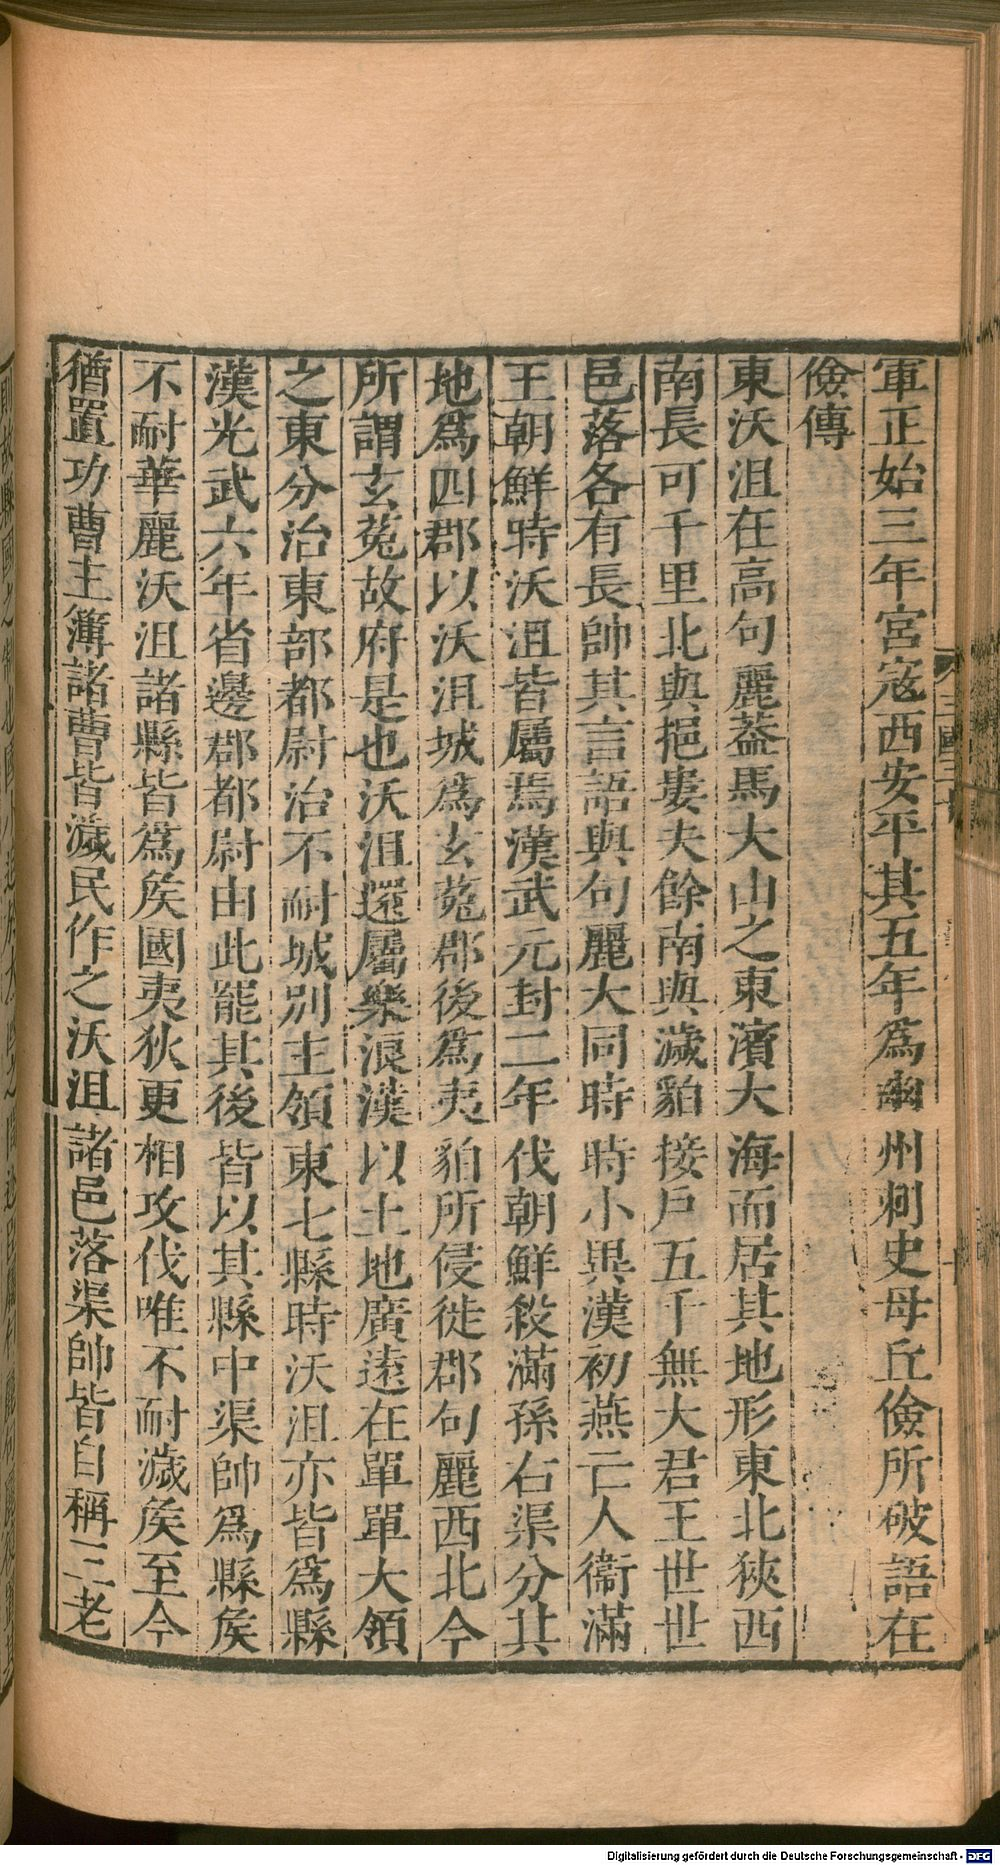 軍正始三年宮寇西安平其五年爲幽州刺史毋丘儉所破語在
儉傳
東沃沮在高句麗葢馬大山之東濱大海而居其地形東北狹西
南長可千里北與挹婁夫餘南與濊貊接戶五千無大君王世世
邑落各有長帥其言語與句麗大同時時小異漢初燕亡人衞滿
王朝鮮時沃沮皆屬焉漢武元封二年伐朝鮮殺滿孫右渠分其
地爲四郡以沃沮城爲玄菟郡後爲夷貊所侵徙郡句麗西北今
所謂玄菟故府是也沃沮還屬樂浪漢以土地廣遠在單單大領
之東分治東部都尉治不耐城別主領東七縣時沃沮亦皆爲縣
漢光武六年省邊郡都尉由此罷其後皆以其縣中渠帥爲縣矦
不耐華麗沃沮諸縣皆爲矦國夷狄更相攻伐唯不耐濊矦至今
猶置功曹主簿諸曹皆濊民作之沃沮諸邑落渠帥皆自稱三老
Digitalisierung gefördert durch die Deutsche Forschungsgemeinschaft - DFG